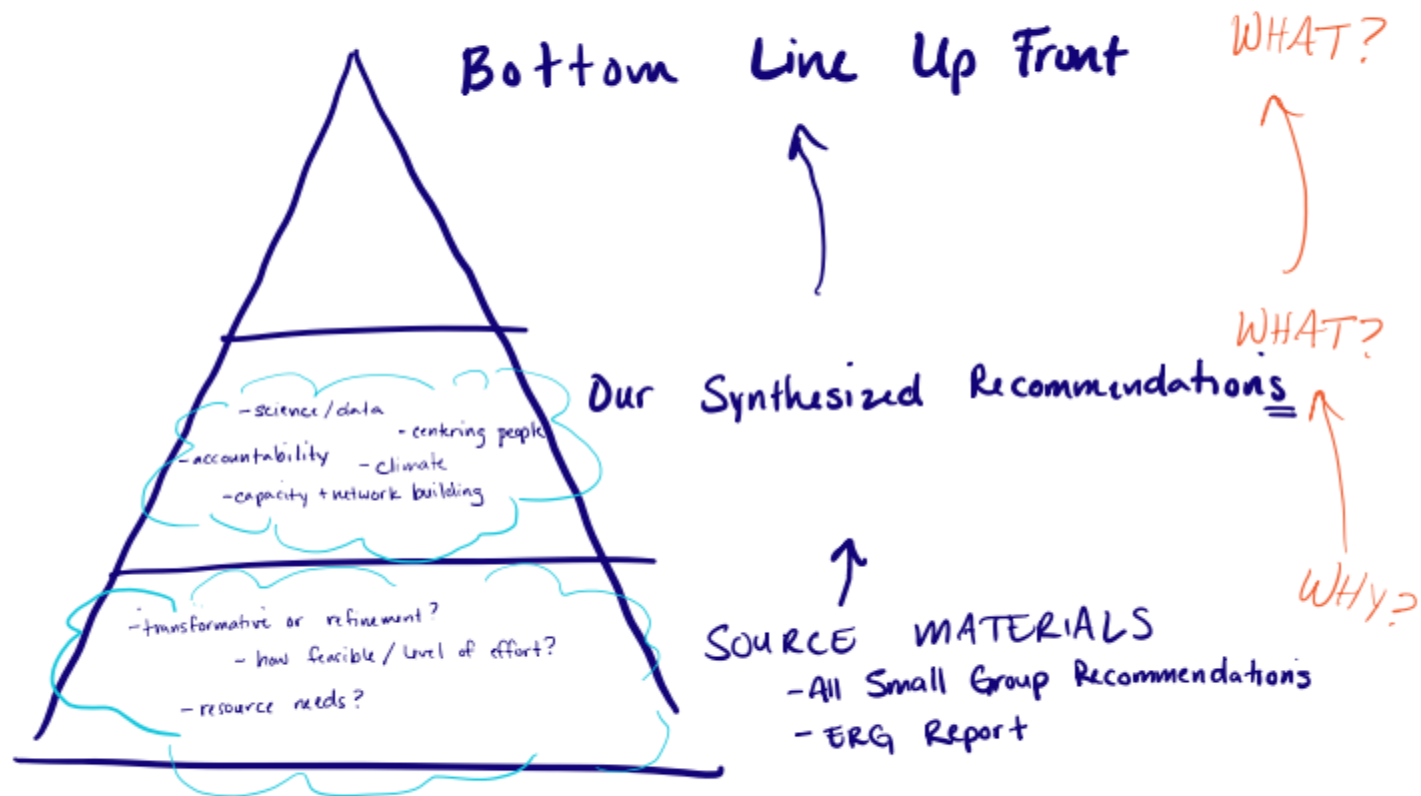 Bottom Line Up Front
WHAT?
WHAT?
Our Synthesized Recommendations
- science/data
- centring people
- accountability
- climate
- capacity + network building
WHY?
- transformative or refinement?
- how feasible / level of effort?
- resource needs?
SOURCE MATERIALS
- All Small Group Recommendations
- ERG Report